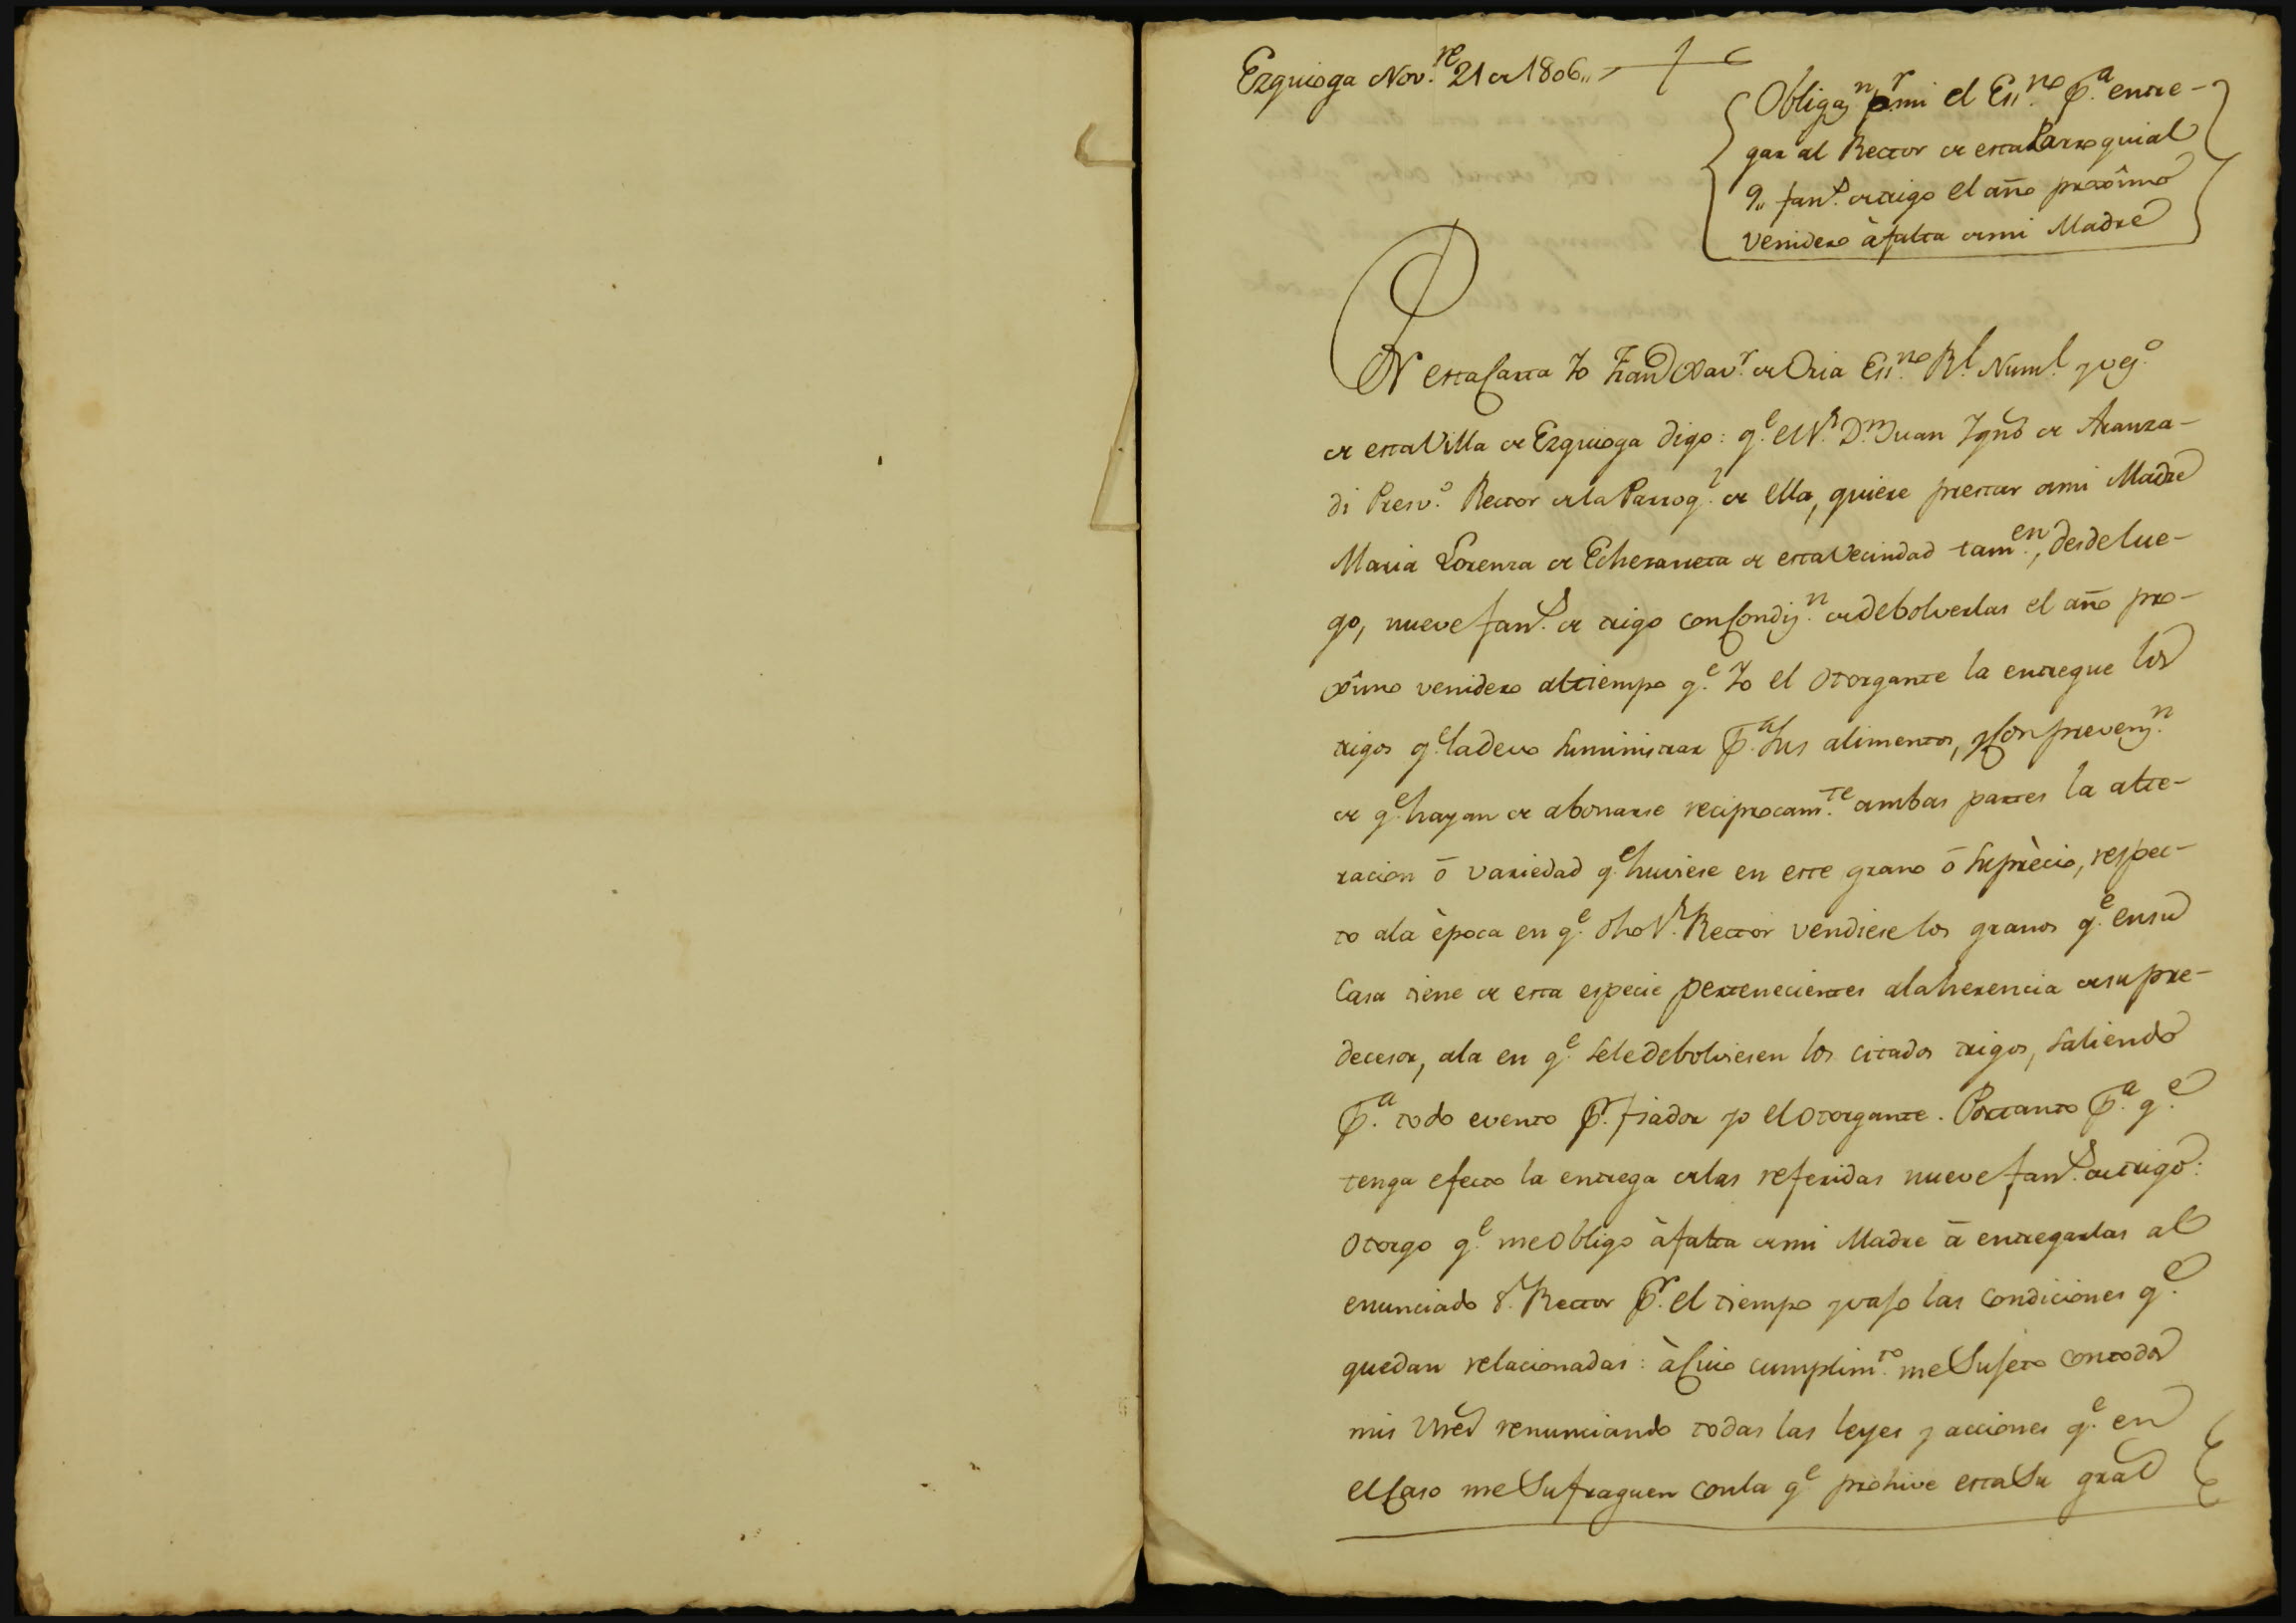 Ezquioga Nov.re 21 de 1806,,
Obligaz.n p.r mi el Ess.no p.a entre-
gar al Rector de esta Parroquial
9,, fan.s de trigo el año proximo
venidero à falta de mi Madre
En esta Carta Yo Fran.co Xav.r de Oria Ess.no R.l Num.l y vez.o
de esta Villa de Ezquioga digo: q.e el S.r D.n Juan Ygn.o de Aranza-
di Presv.o Rector de la Parroq.l de ella, quiere prestar a mi Madre
Maria Lorenza de Echezarreta de esta Vecindad tam.en, desde lue-
go, nueve fan.s de trigo con Condiz.n de debolverlas el año pro-
ximo venidero al tiempo q.e Yo el otorgante la entregue los
trigos q.e la devo suministrar p.a sus alimentos, y con prevenz.n
de q.e hayan de abonarse reciprocam.te ambas partes la alte-
racion ó variedad q.e huviese en este grano ó su prècio, respec-
to a la època en q.e dho S.r Rector vendiese los granos q.e en su
Casa tiene de esta especie pertenecientes a la herencia de su pre-
decesor, a la en q.e se le debolviesen los citados trigos, saliendo
p.a todo evento p.r fiador yo el otorgante. Portanto p.a q.e
tenga efecto la entrega de las referidas nueve fan.s de trigo:
Otorgo q.e me obligo à falta de mi Madre à entregarlas al
enunciado S.r Rector p.r el tiempo y vajo las condiciones q.e
quedan relacionadas: à cuio cumplim.to me Sujeto con todos
mis vnes renunciando todas las leyes y acciones q.e en
el Caso me Sufraguen con la q.e prohive esta Su gral